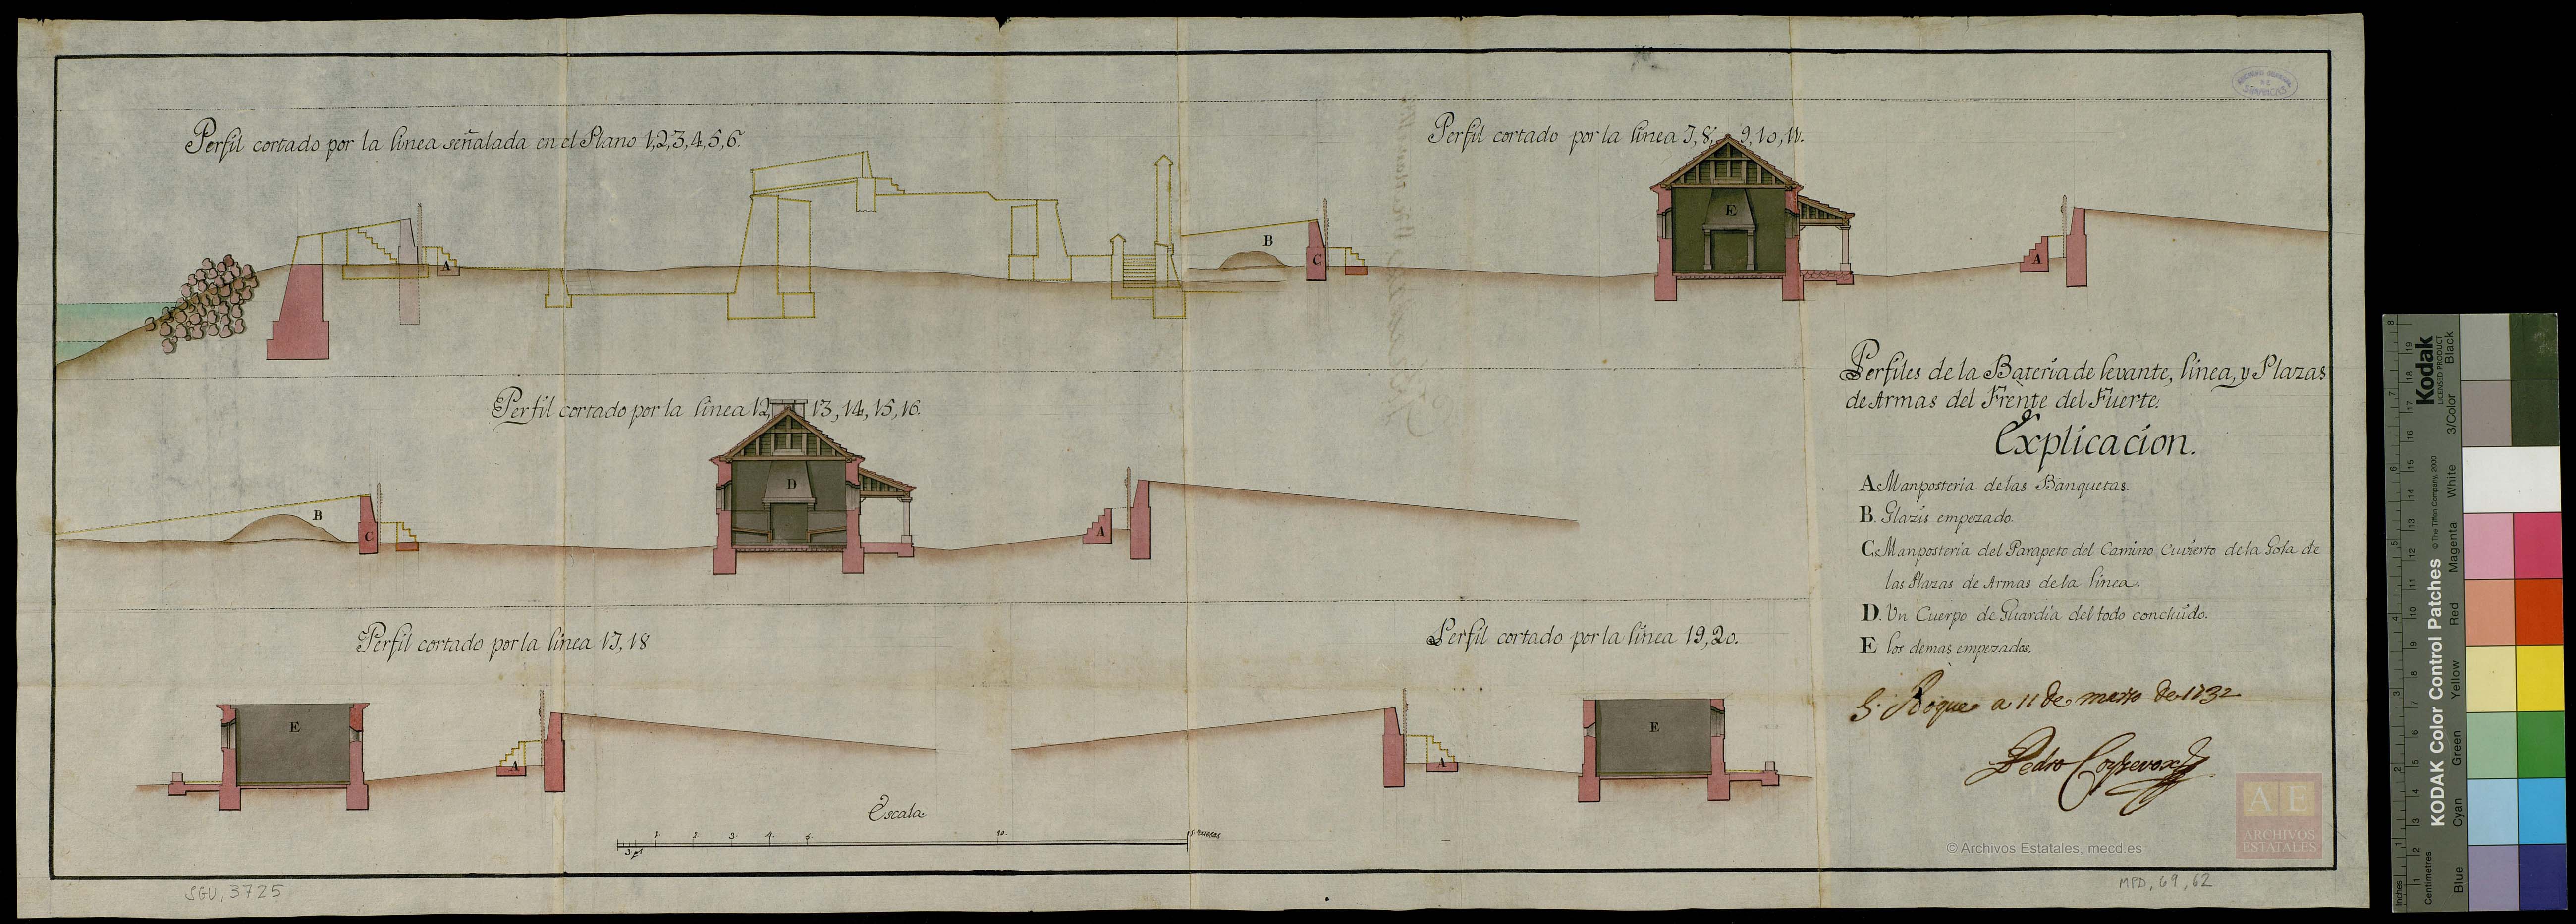 Perfil cortado por la linea señalada en el Plano 1,2,3,4,5,6.
Perfil cortado por la linea 7, 8, 9, 10, 11.
B
A
C
E
A
Perfiles de la Bateria de levante, linea, y Plazas
de Armas del Frente del Fuerte.
Explicacion.
A Manposteria de las Banquetas.
B. Glazis empezado.
C. Manposteria del Parapeto del Camino Cuvierto de la Gola de
las Plazas de Armas de la linea.
D. Un Cuerpo de Guardia del todo concluido.
E los demas empezados.
S. Roque a 11 de marzo de 1732
Pedro Coysevox
Perfil cortado por la linea 12, 13, 14, 15, 16.
B
C
D
A
Perfil cortado por la linea 17, 18
E
A
Perfil cortado por la linea 19, 20.
A
E
Escala
1. 2. 3. 4. 5. 10. 15. tuesas
3. ps
SGU, 3725
MPD, 69, 62
© Archivos Estatales, mecd.es
A E
ARCHIVOS
ESTATALES
Kodak
LICENSED PRODUCT
KODAK Color Control Patches © The Tiffen Company, 2000
Blue Cyan Green Yellow Red Magenta White 3/Color Black
Inches 1 2 3 4 5 6 7 8
Centimetres 1 2 3 4 5 6 7 8 9 10 11 12 13 14 15 16 17 18 19